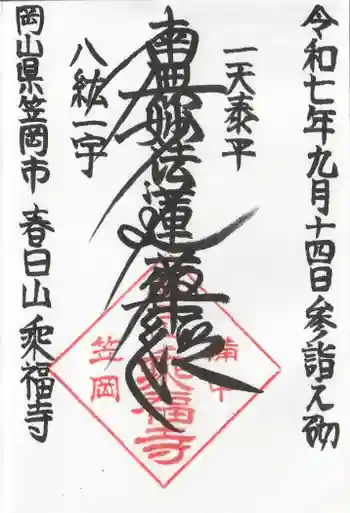 令和七年九月十四日参詣之砌
一天泰平
南無妙法蓮華経
八紘一宇
岡山県笠岡市 春日山 乘福寺
備中
乘福寺
笠岡